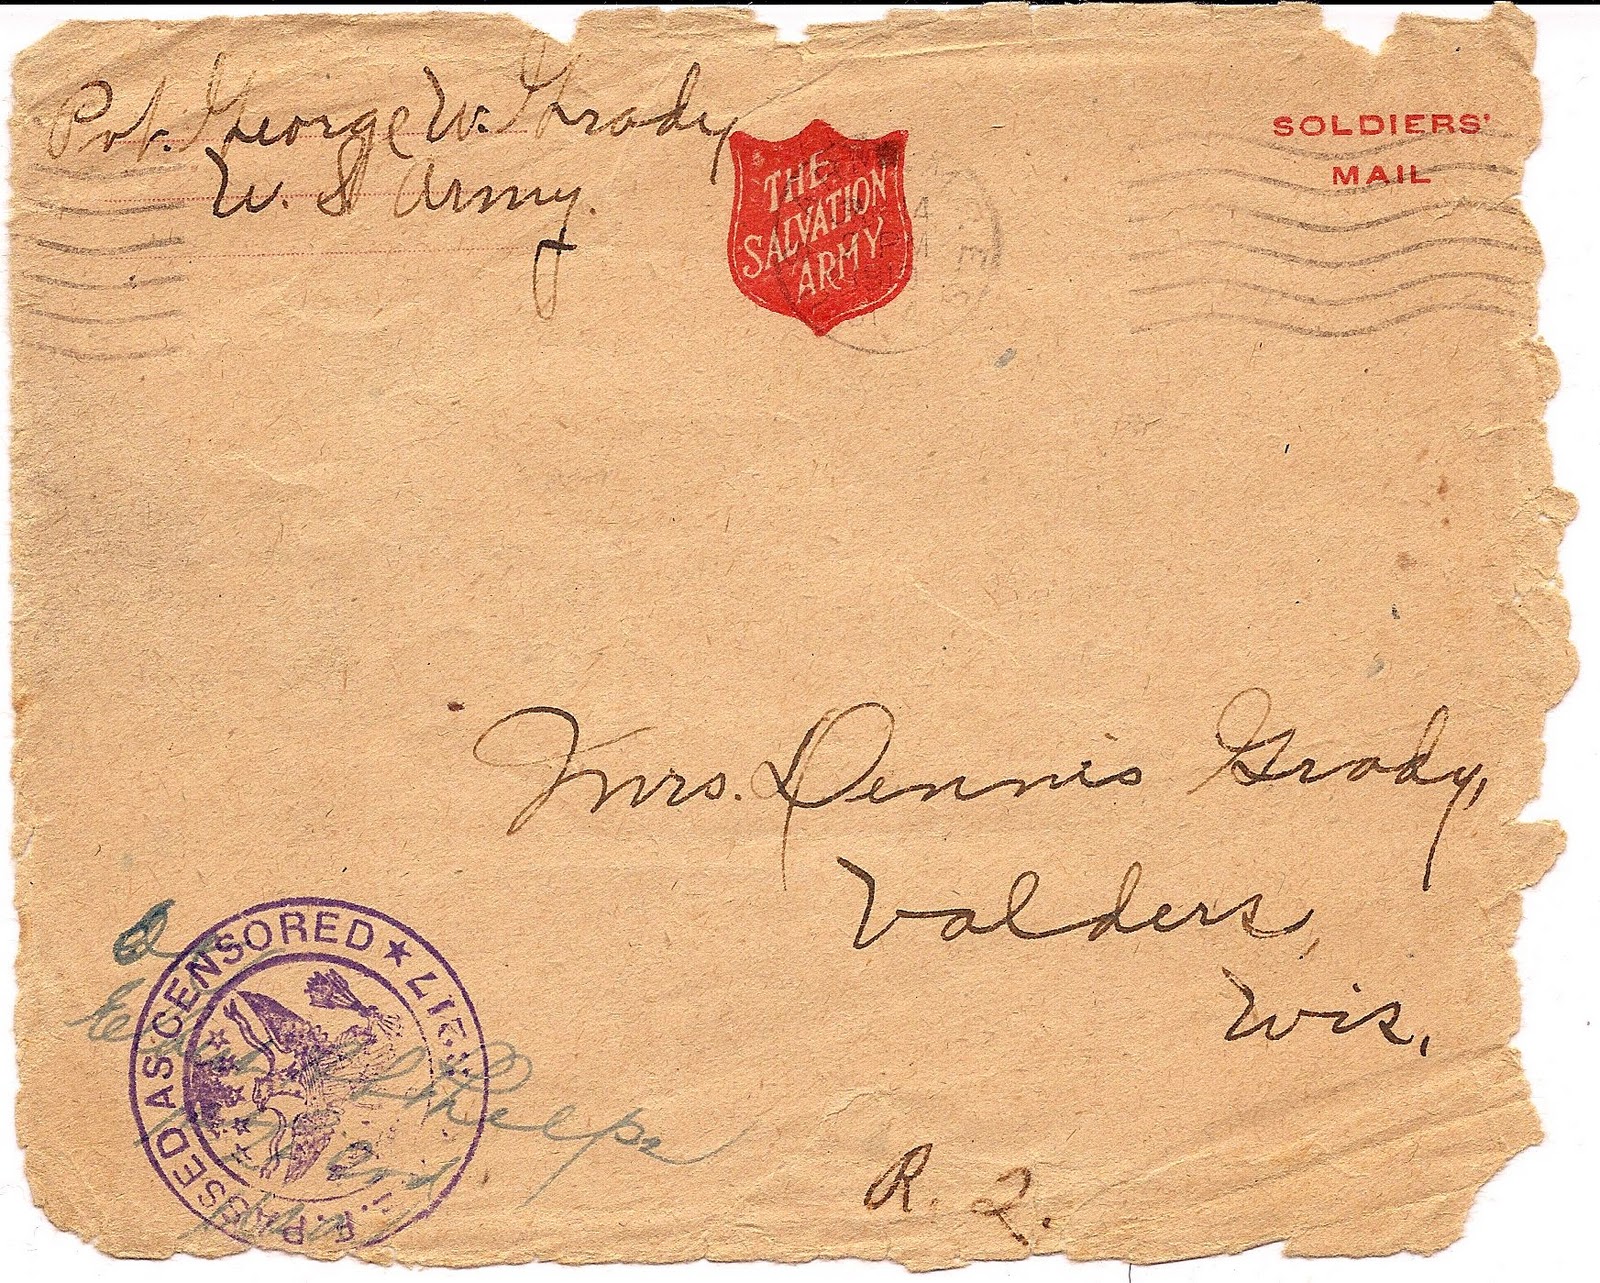 Pvt. George W. Grady
U. S Army.
THE
SALVATION
ARMY
SOLDIERS'
MAIL
Mrs. Dennis Grady,
Valders,
Wis.
R. 2.
PASSED AS CENSORED ★
Phelps